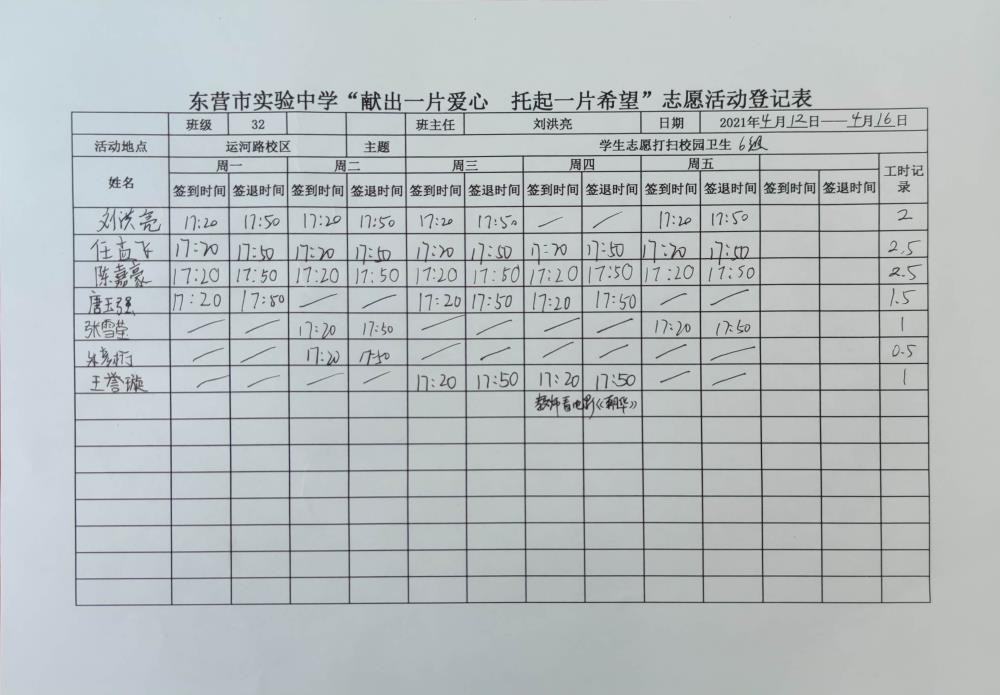 东营市实验中学“献出一片爱心 托起一片希望”志愿活动登记表
班级 32 班主任 刘洪亮 日期 2021年4月12日——4月16日
活动地点 运河路校区 主题 学生志愿打扫校园卫生 6级
姓名 周一 周二 周三 周四 周五 工时记录
签到时间 签退时间 签到时间 签退时间 签到时间 签退时间 签到时间 签退时间 签到时间 签退时间 签到时间 签退时间
刘洪亮 17:20 17:50 17:20 17:50 17:20 17:50 — — 17:20 17:50 2
任孟飞 17:20 17:50 17:20 17:50 17:20 17:50 17:20 17:50 17:20 17:50 2.5
陈嘉豪 17:20 17:50 17:20 17:50 17:20 17:50 17:20 17:50 17:20 17:50 2.5
唐玉强 17:20 17:50 — — 17:20 17:50 17:20 17:50 — — 1.5
张雪莹 — — 17:20 17:50 — — — — 17:20 17:50 1
朱彦 — — 17:20 17:50 — — — — — — 0.5
王誉璇 — — — — 17:20 17:50 17:20 17:50 — — 1
教师看电影《 》